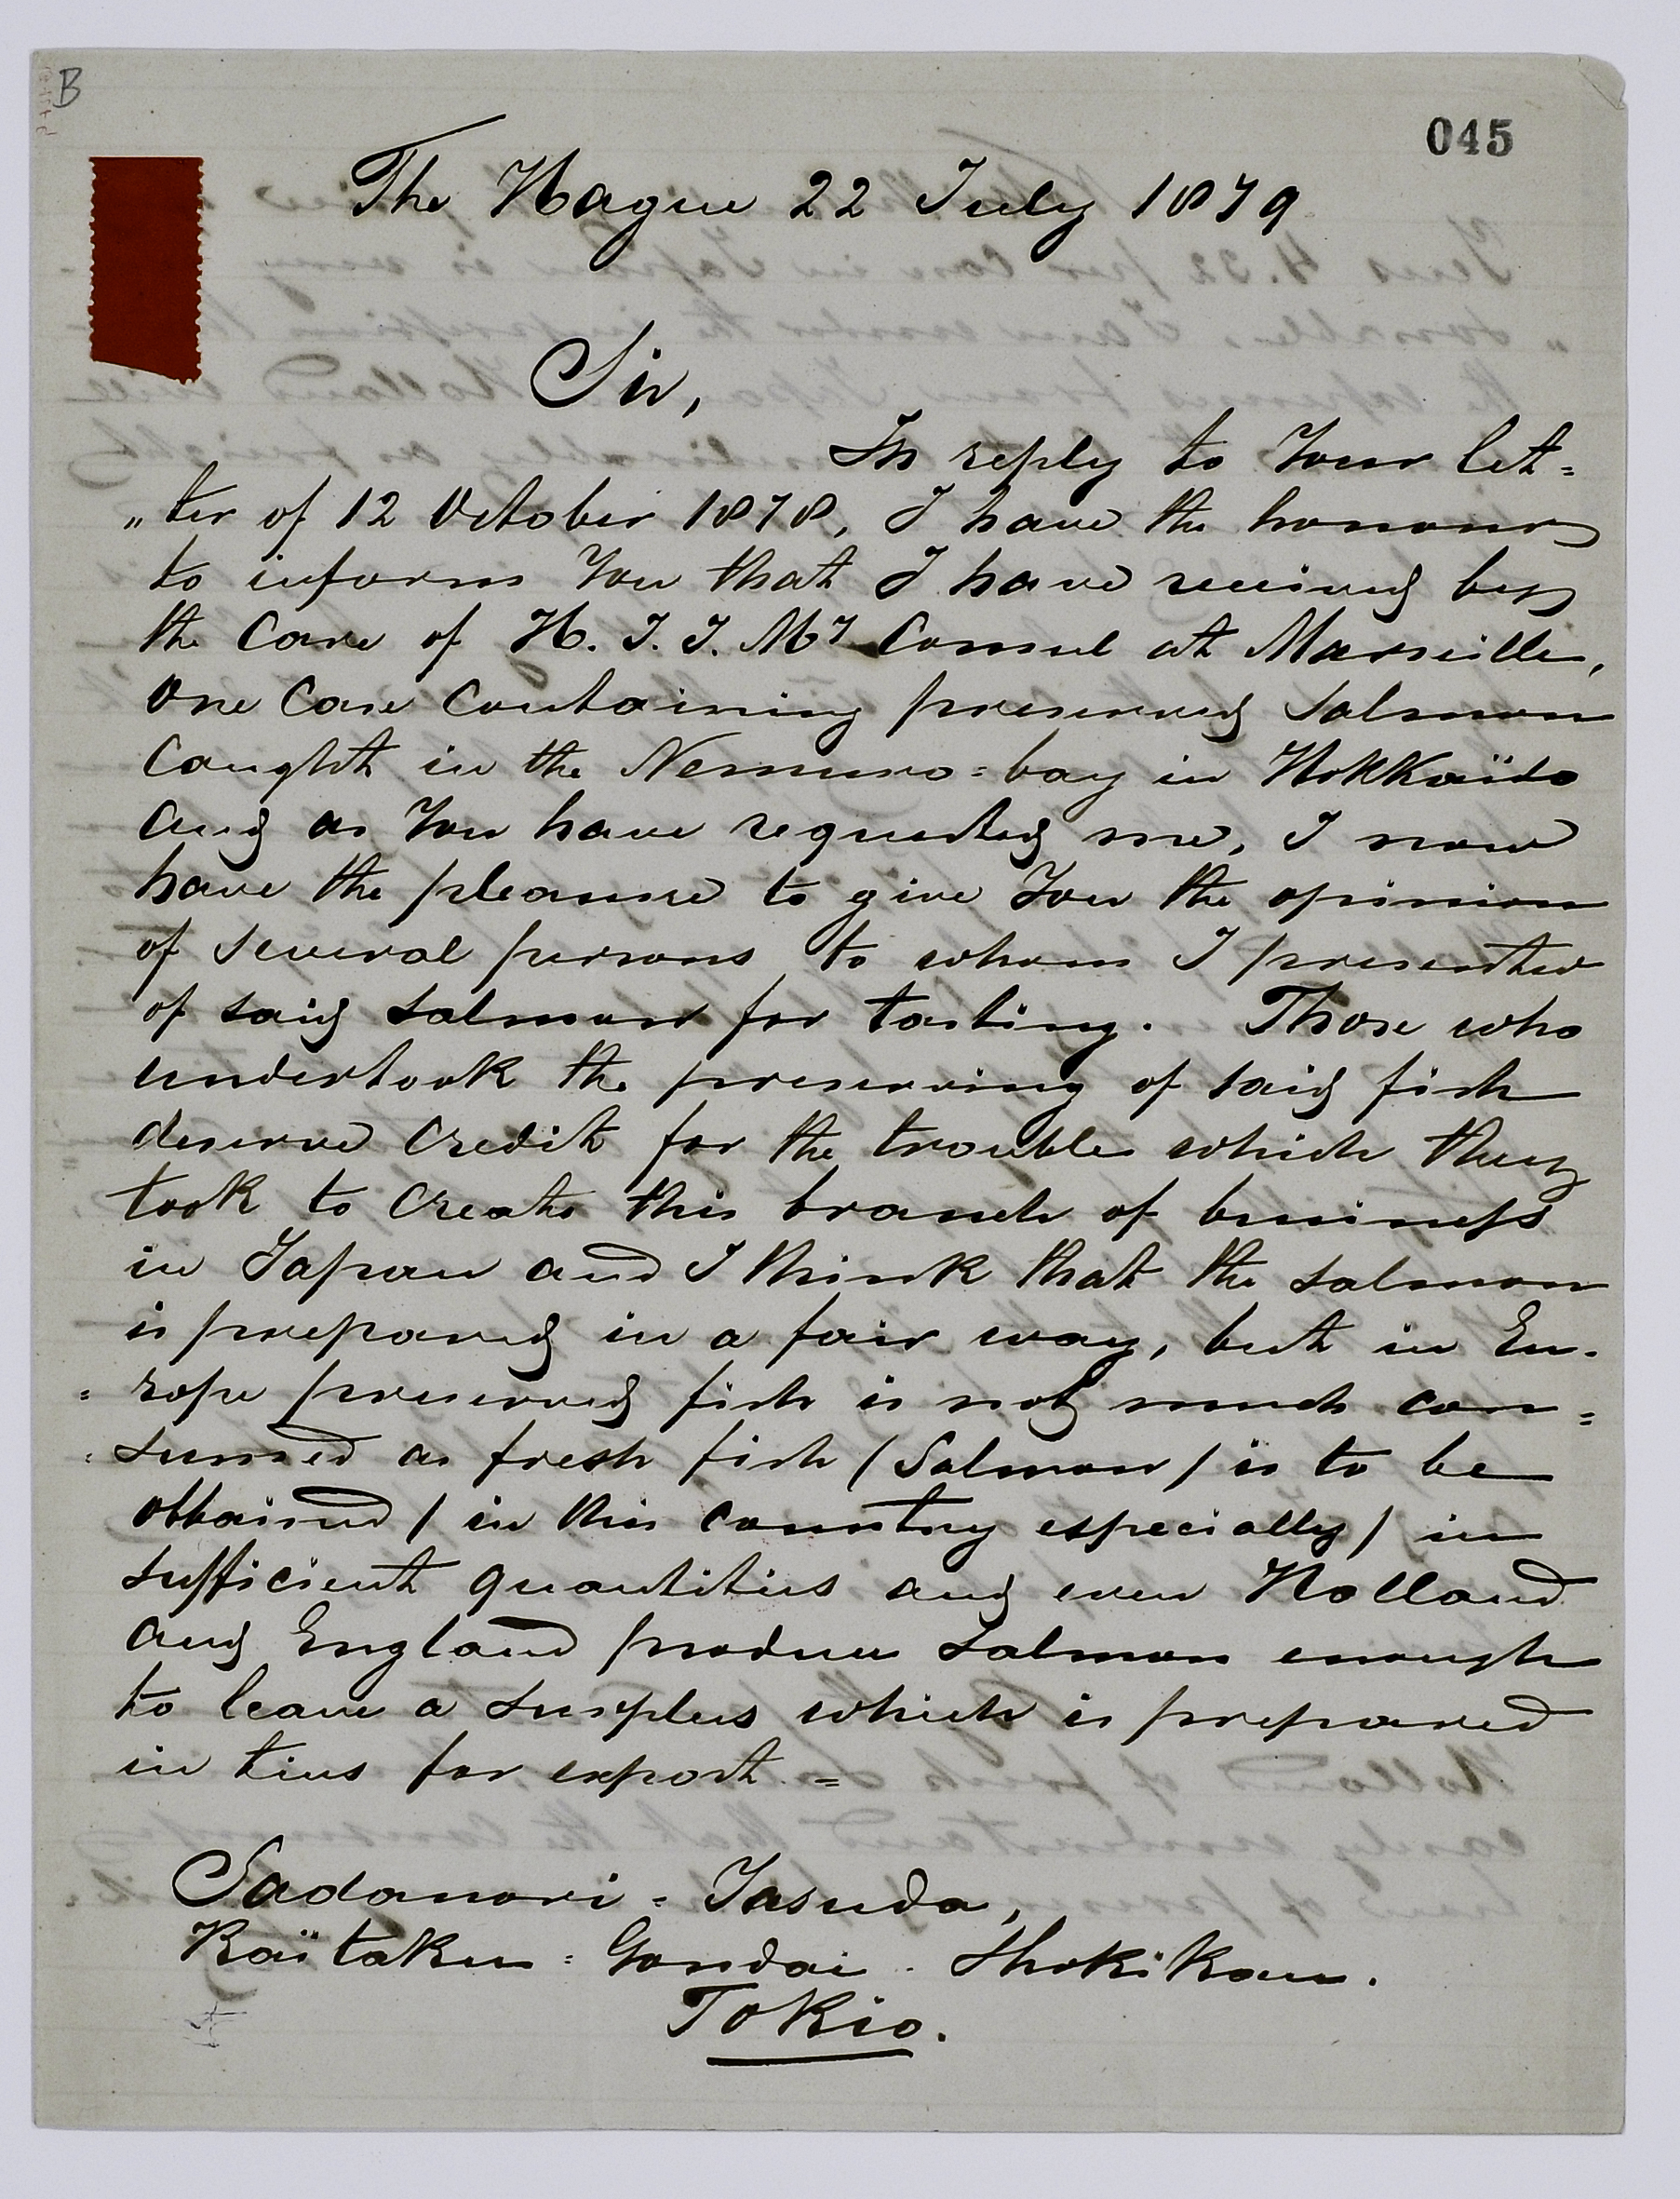 B
045
The Hague 22 July 1879
Sir,
In reply to Your let=
"ter of 12 October 1878, I have the honour
to inform You that I have received by
the Care of H. I. J. My Consul at Marseille,
One Case Containing preserved Salmon
Caught in the Nemuro=bay in Hokkaïdo
and as You have requested me, I now
have the pleasure to give You the opinion
of several persons to whom I presented
of said salmon for tasting. Those who
undertook the preserving of said fish
deserve Credit for the trouble which they
took to Create this branch of business
in Japan and I think that the salmon
is prepared in a fair way, but in Eu=
=rope preserved fish is not much con=
=sumed as fresh fish (Salmon) is to be
obtained (in this country especially) in
sufficient quantities and even Holland
and England produce salmon enough
to leave a surplus which is prepared
in tins for export.=
Sadanori=Jasuda,
Kaïtaku=Gondai-Shokikan.
Tokio.